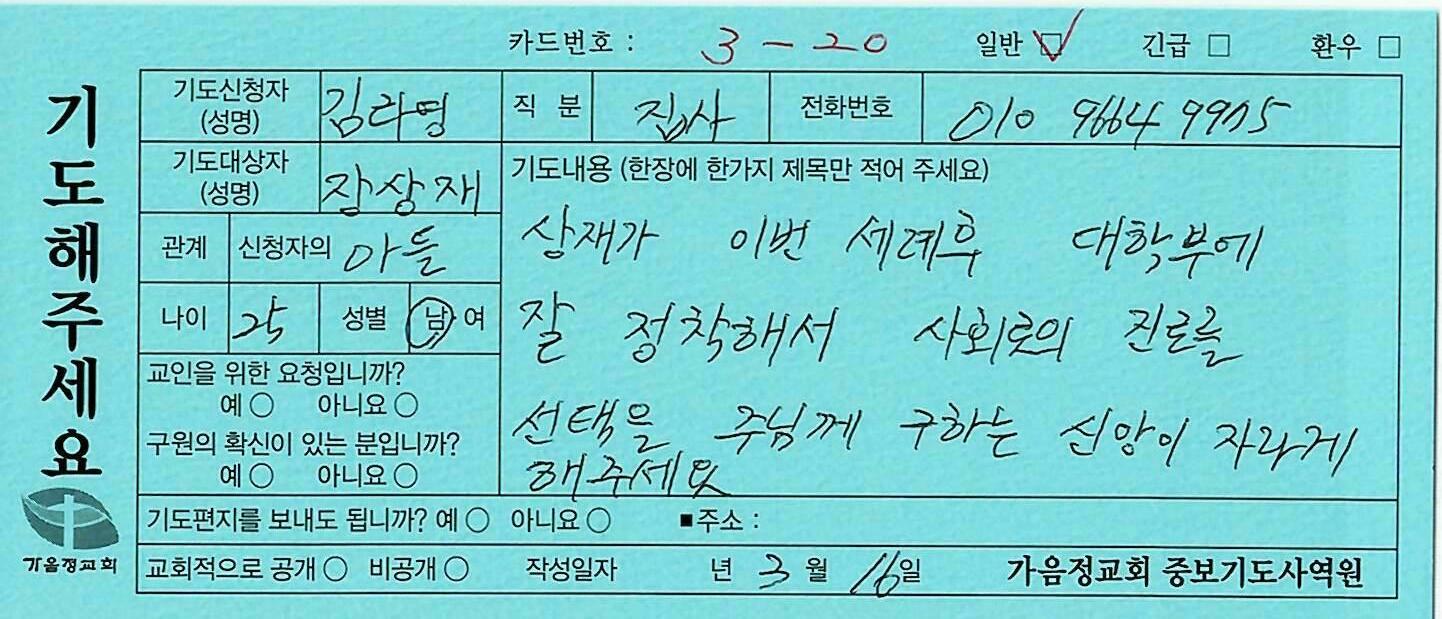 카드번호 : 3 - 20 일반 □ 긴급 □ 환우 □
기도해주세요
가음정교회
기도신청자 (성명) 김라영 직 분 집사 전화번호 010 9664 9975
기도대상자 (성명) 장상재
관계 신청자의 아들
나이 25 성별 남 여
교인을 위한 요청입니까?
예 ○ 아니요 ○
구원의 확신이 있는 분입니까?
예 ○ 아니요 ○
기도내용 (한장에 한가지 제목만 적어 주세요)
상재가 이번 세례후 대학부에
잘 정착해서 사회로의 진로를
선택을 주님께 구하는 신앙이 자라게
해주세요
기도편지를 보내도 됩니까? 예 ○ 아니요 ○ ■주소 :
교회적으로 공개 ○ 비공개 ○ 작성일자 년 3 월 16 일 가음정교회 중보기도사역원